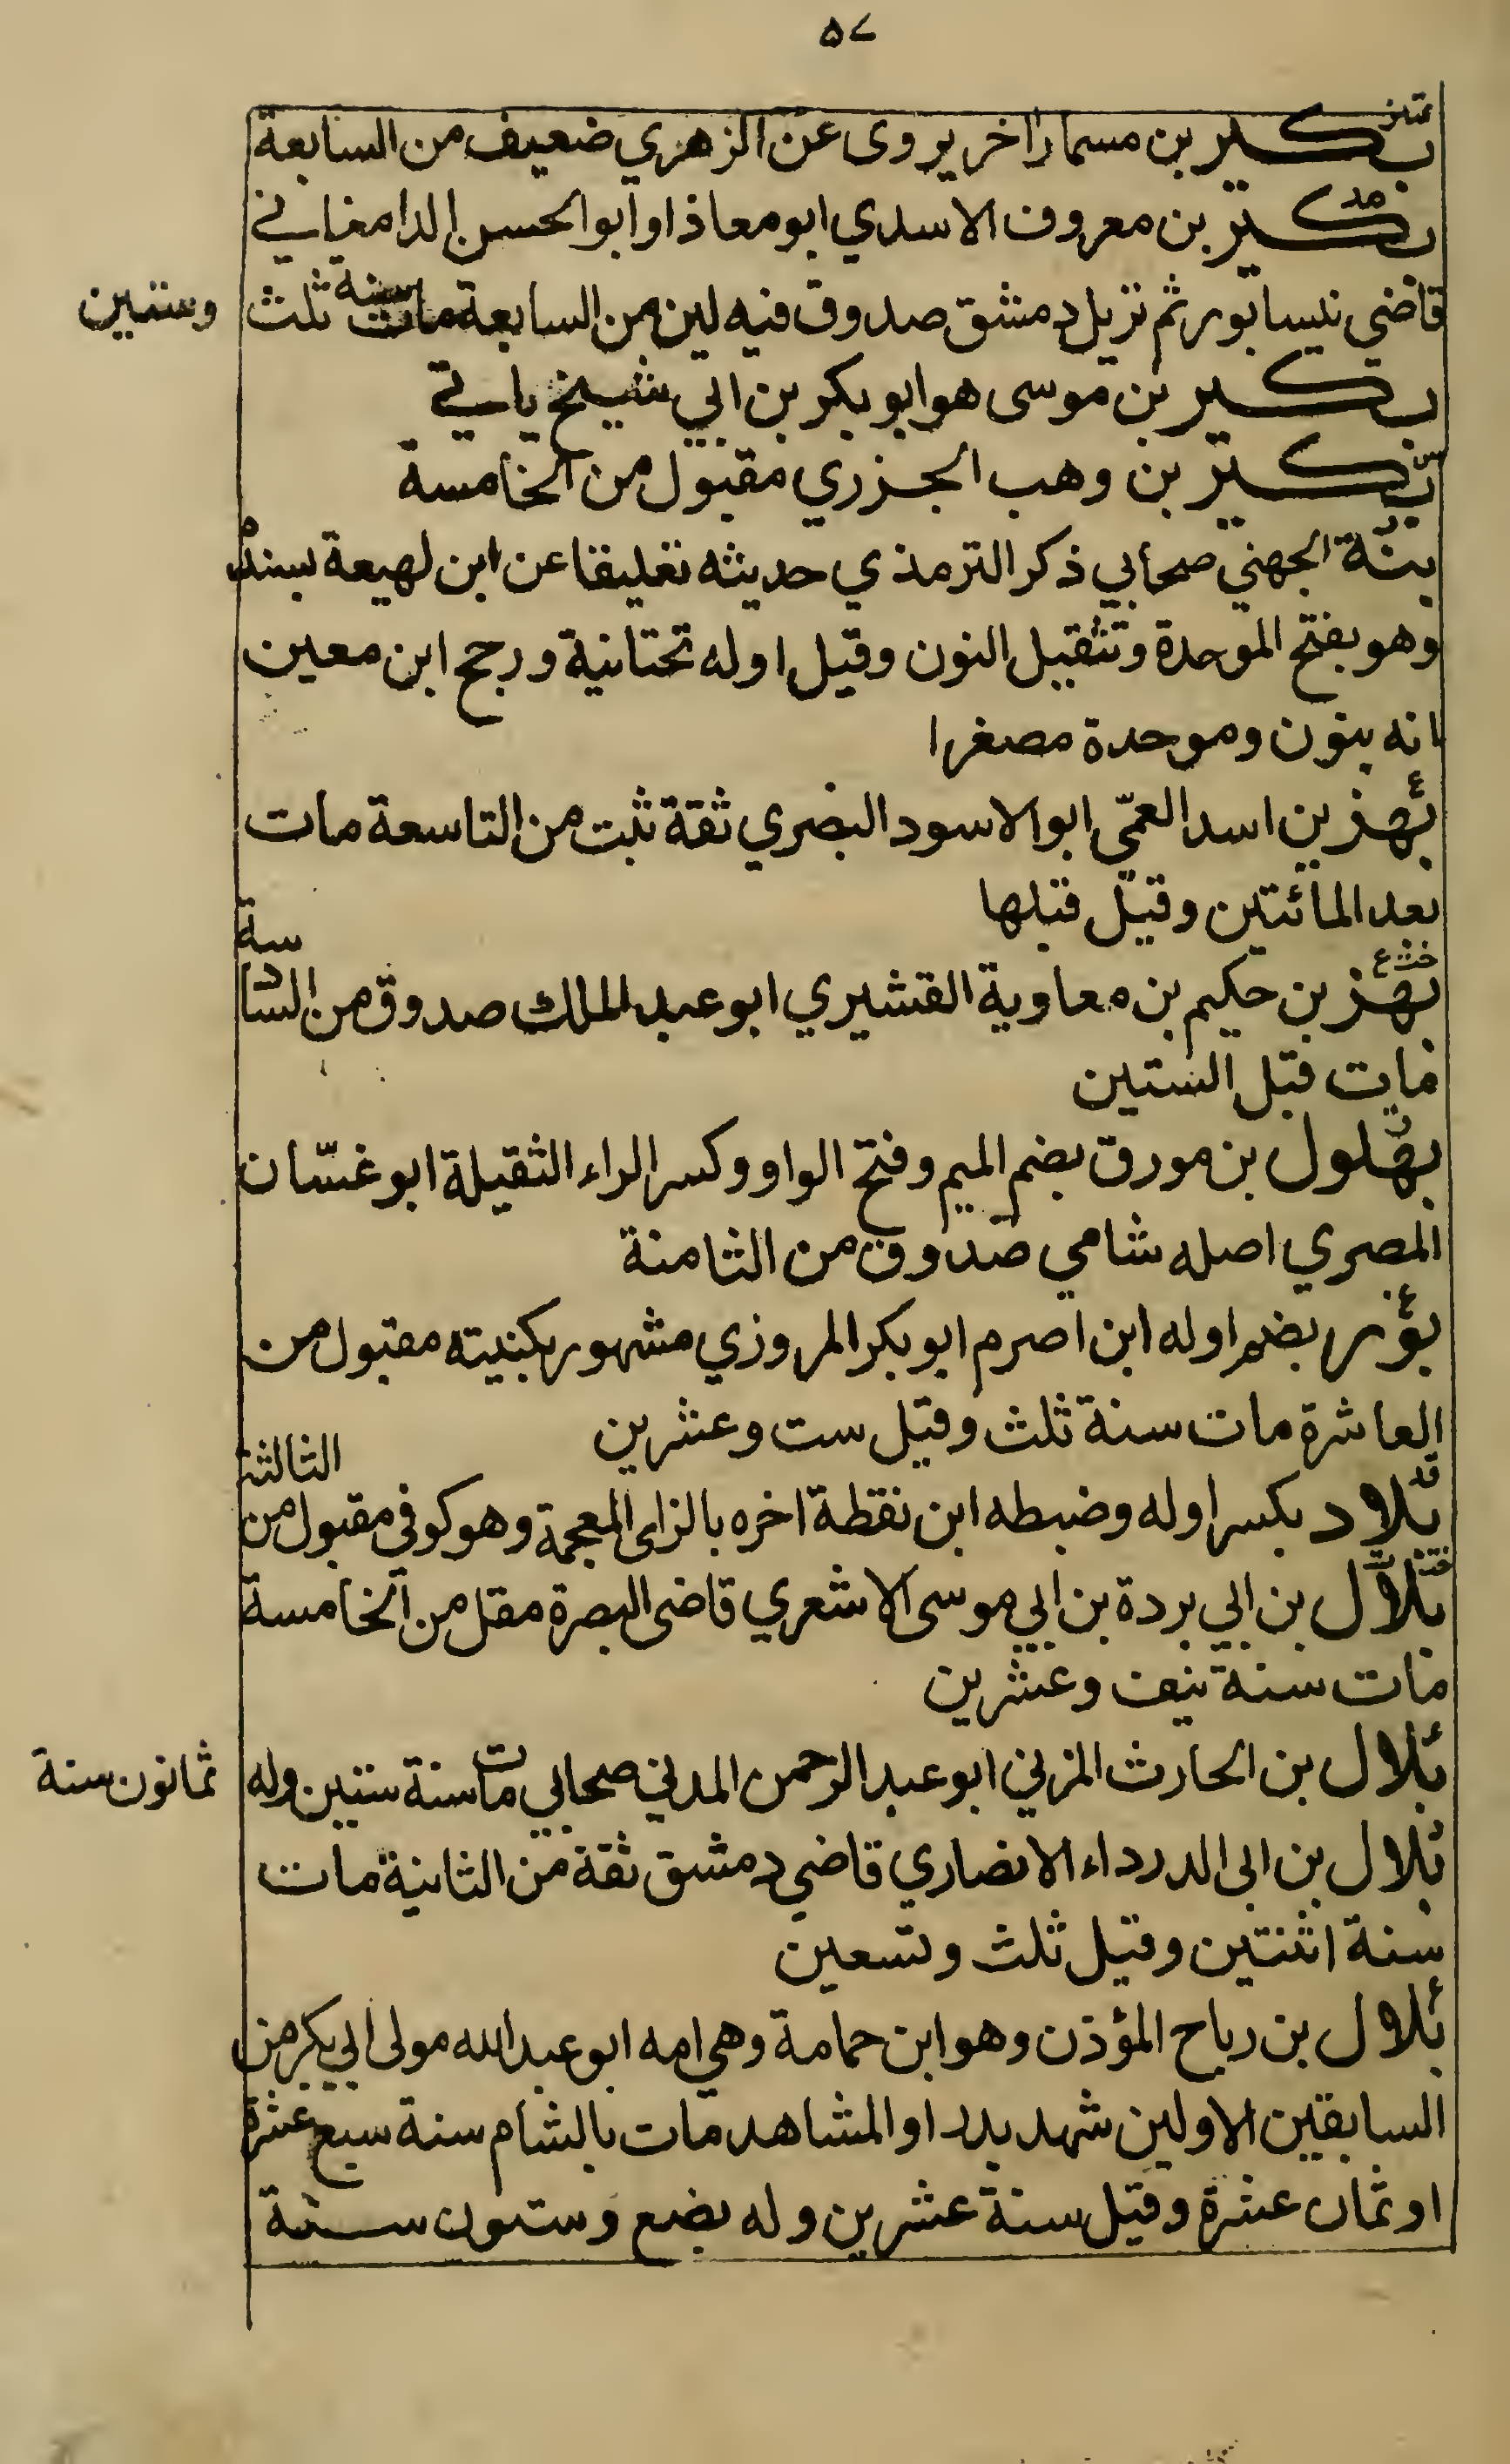 ٥٧
تمييز
بكير بن مسمار اخر يروى عن الزهري ضعيف من السابعة
مد
بكير بن معروف الاسدي ابو معاذ او ابو الحسن الدامغاني
قاضي نيسابور ثم نزيل دمشق صدوق فيه لين من السابعة مات سنة ثلث وستين
بكير بن موسى هو ابو بكر بن ابي شيخ ياتي
س
بكير بن وهب الجزري مقبول من الخامسة
ت
بنة الجهني صحابي ذكر الترمذي حديثه تعليقا عن ابن لهيعة بسنده
وهو بفتح الموحدة وتثقيل النون وقيل اوله تحتانية ورجح ابن معين
انه بنون وموحدة مصغرا
ع
بهز بن اسد العمّي ابو الاسود البصري ثقة ثبت من التاسعة مات
بعد المائتين وقيل قبلها
خت ع
بهز بن حكيم بن معاوية القشيري ابو عبد الملك صدوق من السادسة
مات قبل الستين
ق
بهلول بن مورق بضم الميم وفتح الواو وكسر الراء الثقيلة ابو غسّان
المصري اصله شامي صدوق من الثامنة
بور بضم اوله ابن اصرم ابو بكر المروزي مشهور بكنيته مقبول من
العاشرة مات سنة ثلث وقيل ست وعشرين
قد
بلاد بكسر اوله وضبطه ابن نقطة اخره بالزاى المعجمة وهو كوفى مقبول من الثالثة
خت ت
بلال بن ابي بردة بن ابي موسى الاشعري قاضى البصرة مقل من الخامسة
مات سنة نيف وعشرين
بلال بن الحارث المزني ابو عبد الرحمن المدني صحابي مات سنة ستين وله ثمانون سنة
بلال بن ابى الدرداء الانصاري قاضي دمشق ثقة من الثانية مات
سنة اثنتين وقيل ثلث وتسعين
ع
بلال بن رباح المؤذن وهو ابن حمامة وهي امه ابو عبد الله مولى ابي بكر من
السابقين الاولين شهد بدرا والمشاهد مات بالشام سنة سبع عشرة
او ثمان عشرة وقيل سنة عشرين وله بضع وستون سنة